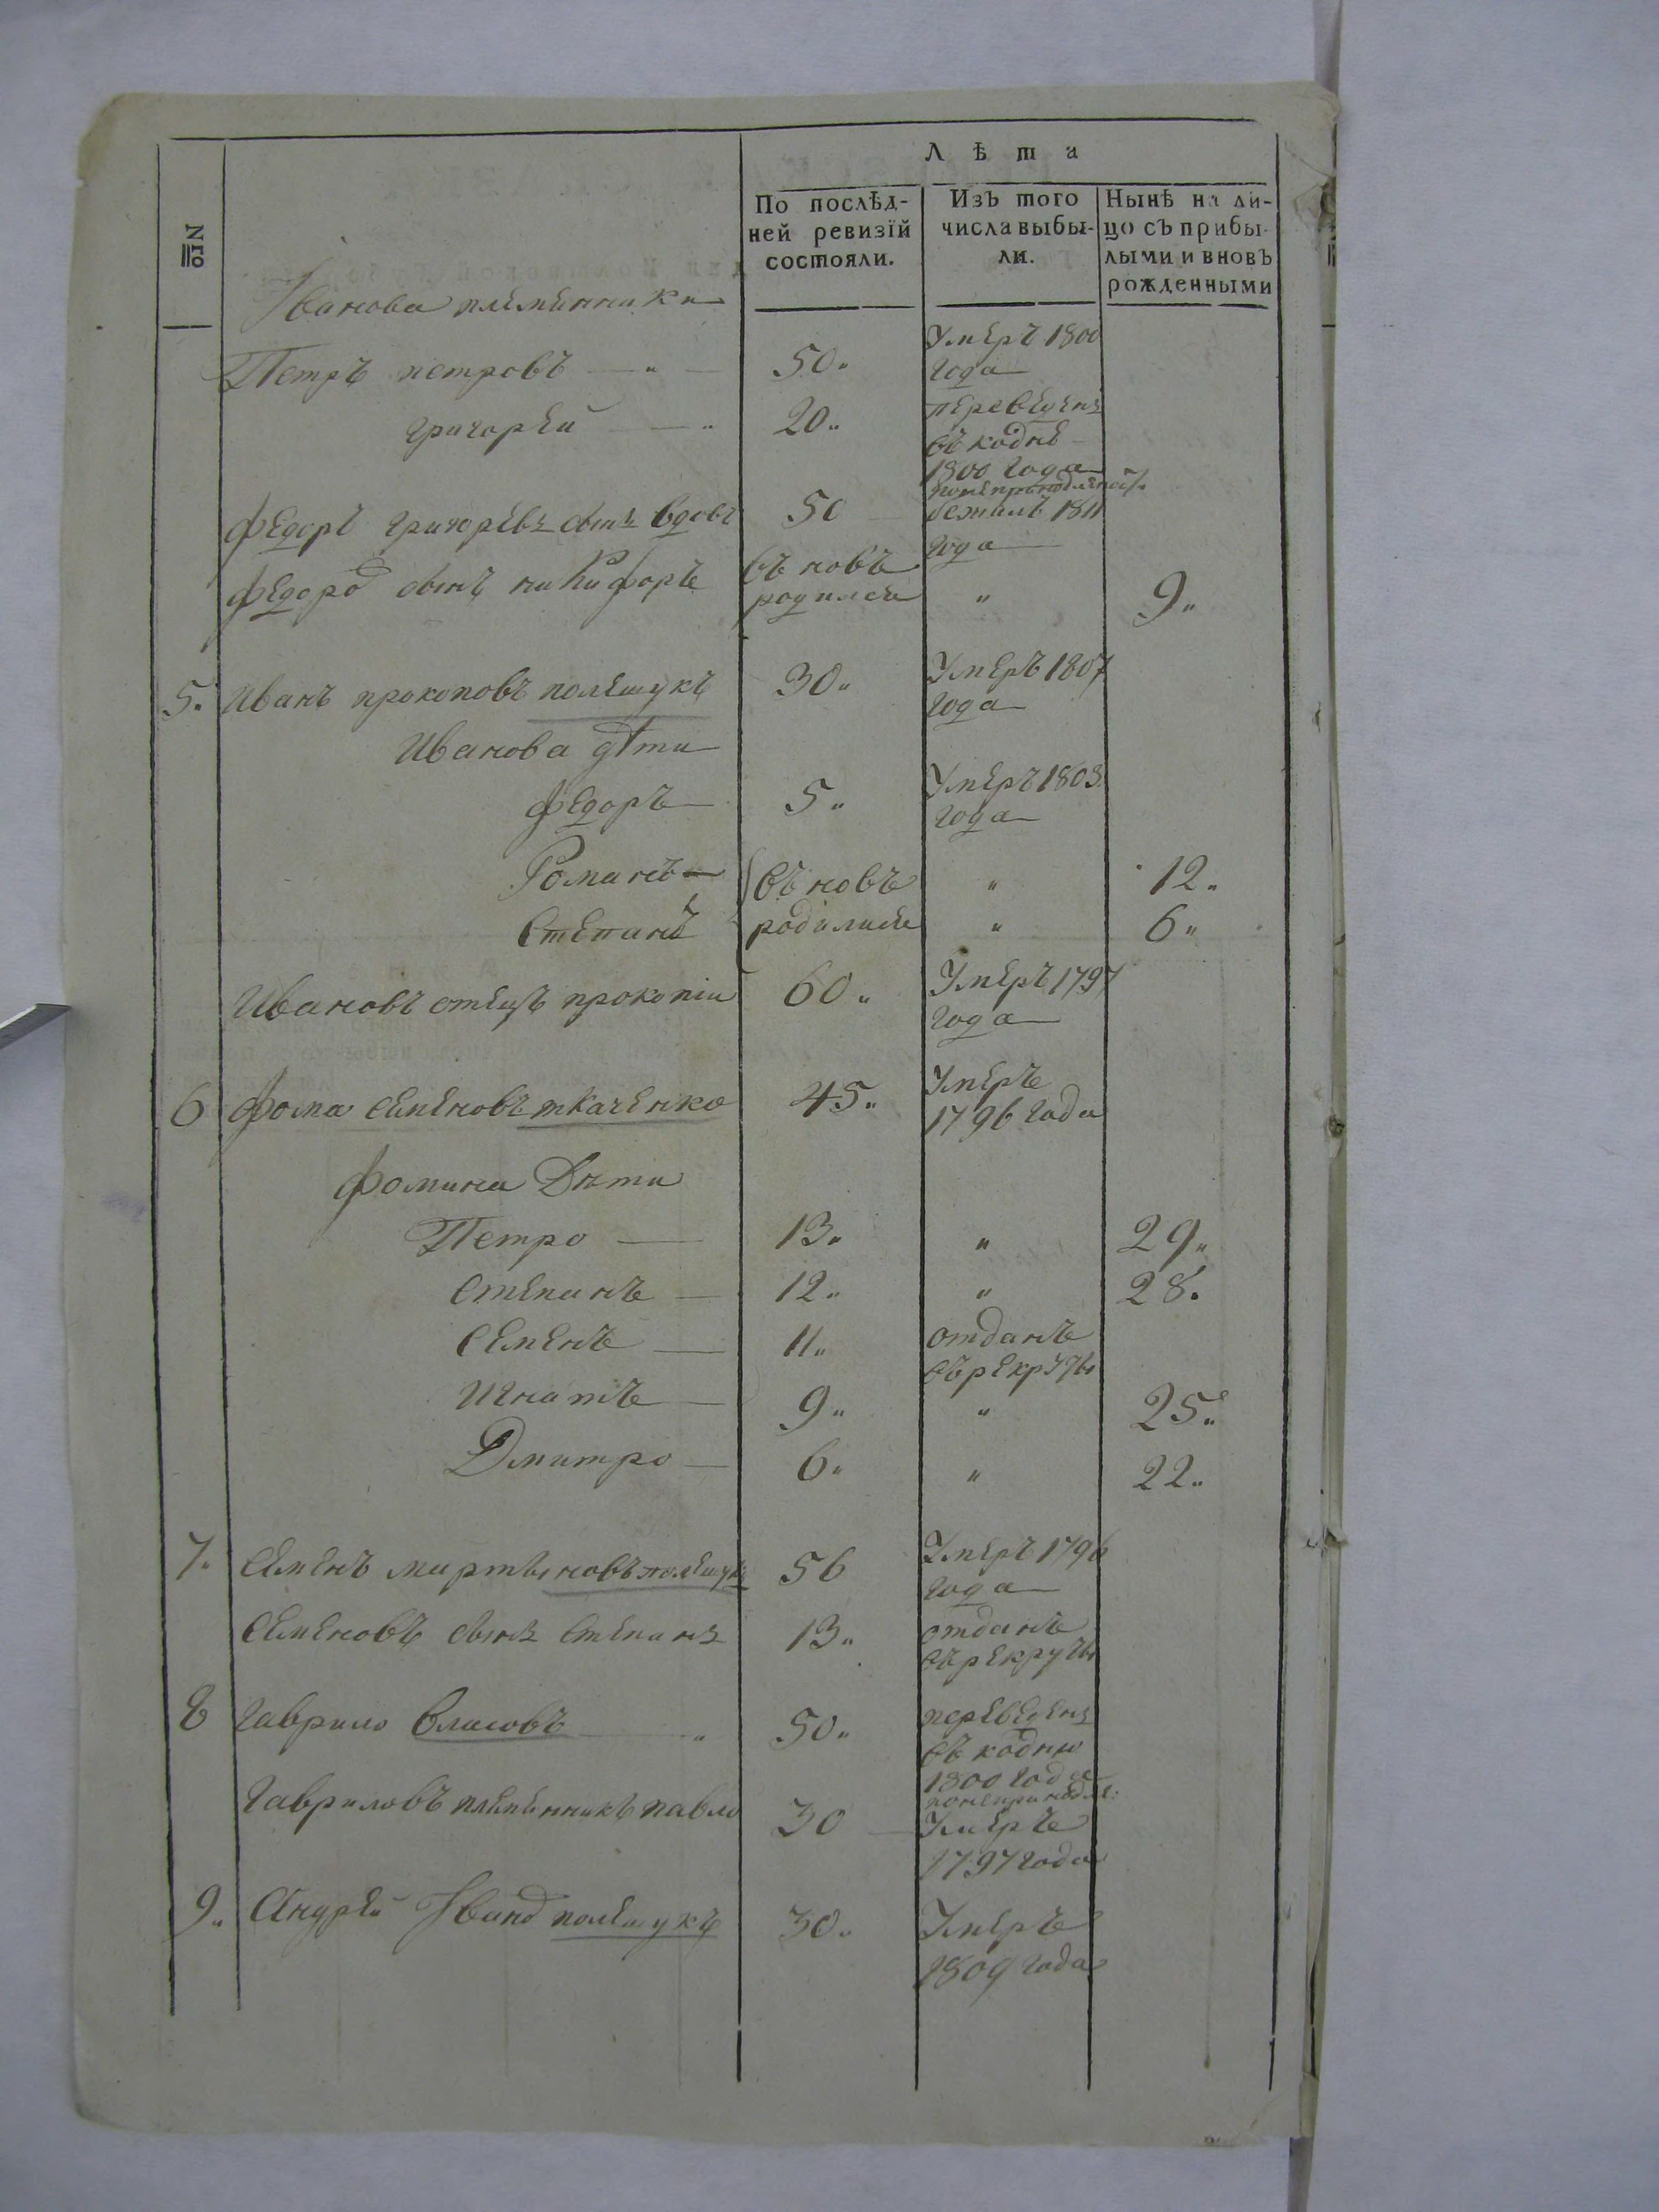 Лѣта
№
По послѣд-
ней ревизїй
состояли.
Изъ того
числа выбы-
ли.
Нынѣ на ли-
цо съ прибы-
лыми и вновъ
рожденными
Іванова племенники
Петръ петровъ 50. Умеръ 1800
года
григорей 20. переведенъ
въ кодне
1800 года
федоръ григоревъ сынъ вдовъ 50 бежалъ 1811
года
федоро сынъ никифоръ въ новъ
родился " 9.
5. Иванъ прокоповъ полешукъ 30. Умеръ 1807
года
Иванова дѣти
федоръ 5. Умеръ 1803
года
Романъ въ новъ " 12.
Степанъ родились " 6.
Ивановъ отецъ прокопіи 60. Умеръ 1797
года
6 фома семеновъ ткаченко 45. Умеръ
1796 года
фомина Дѣти
Петро 13. " 29.
Степанъ 12. " 28.
Семенъ 11. отданъ
въ рекруты
Игнатъ 9. " 25.
Дмитро 6. " 22.
7. Семенъ мартыновъ полешукъ 56 Умеръ 1796
года
Семеновъ сынъ Степанъ 13. отданъ
въ рекруты
8 гаврило власовъ 50. переведенъ
въ кодню
1800 года
гавриловъ племенникъ павло 30 Умеръ
1797 года
9. Андрей Іванов полешукъ 30. Умеръ
1809 года